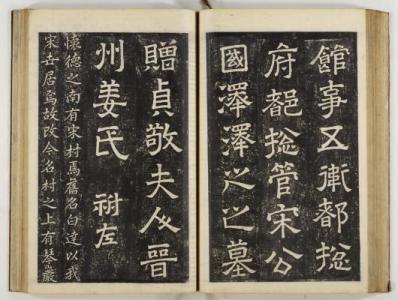 館事五衛都揔
府都揔管宋公
國澤澤之之墓
贈貞敬夫人晉
州姜氏 祔左
懷德之南有宋村焉舊名白達以我
宋世居焉故改今名村之上有琴巖